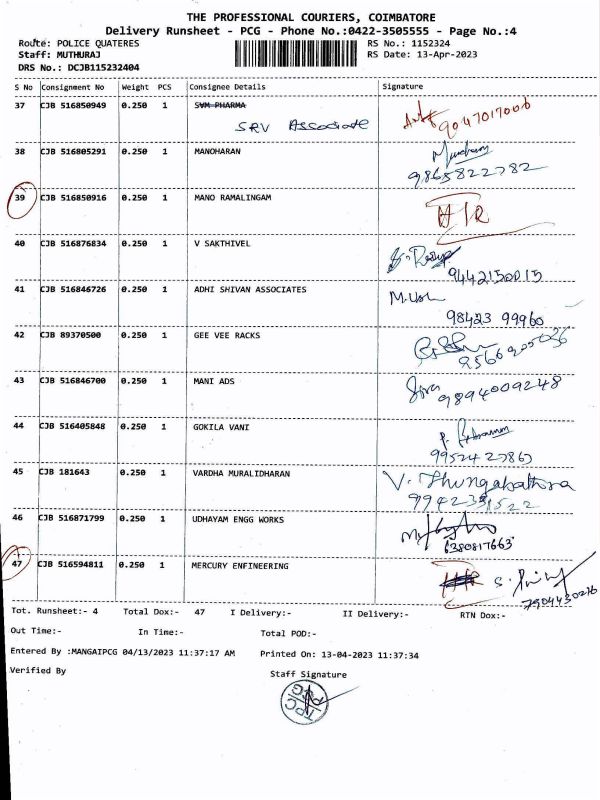 THE PROFESSIONAL COURIERS, COIMBATORE
Delivery Runsheet - PCG - Phone No.:0422-3505555 - Page No.:4
Route: POLICE QUATERES RS No.: 1152324
Staff: MUTHURAJ RS Date: 13-Apr-2023
DRS No.: DCJB115232404
S No Consignment No Weight PCS Consignee Details Signature
37 CJB 516850949 0.250 1 SVM PHARMA
SRV Associate 9047017006
38 CJB 516805291 0.250 1 MANOHARAN
9865822782
39 CJB 516850916 0.250 1 MANO RAMALINGAM H/R
40 CJB 516876834 0.250 1 V SAKTHIVEL
9442150015
41 CJB 516846726 0.250 1 ADHI SHIVAN ASSOCIATES
98423 99960
42 CJB 89370500 0.250 1 GEE VEE RACKS
9566205036
43 CJB 516846700 0.250 1 MANI ADS
9894009248
44 CJB 516405848 0.250 1 GOKILA VANI
45 CJB 181643 0.250 1 VARDHA MURALIDHARAN V. Thungabathra
46 CJB 516871799 0.250 1 UDHAYAM ENGG WORKS
6380817663
47 CJB 516594811 0.250 1 MERCURY ENFINEERING
7904430276
Tot. Runsheet:- 4 Total Dox:- 47 I Delivery:- II Delivery:- RTN Dox:-
Out Time:- In Time:- Total POD:-
Entered By :MANGAIPCG 04/13/2023 11:37:17 AM Printed On: 13-04-2023 11:37:34
Verified By Staff Signature
TPC
PCG